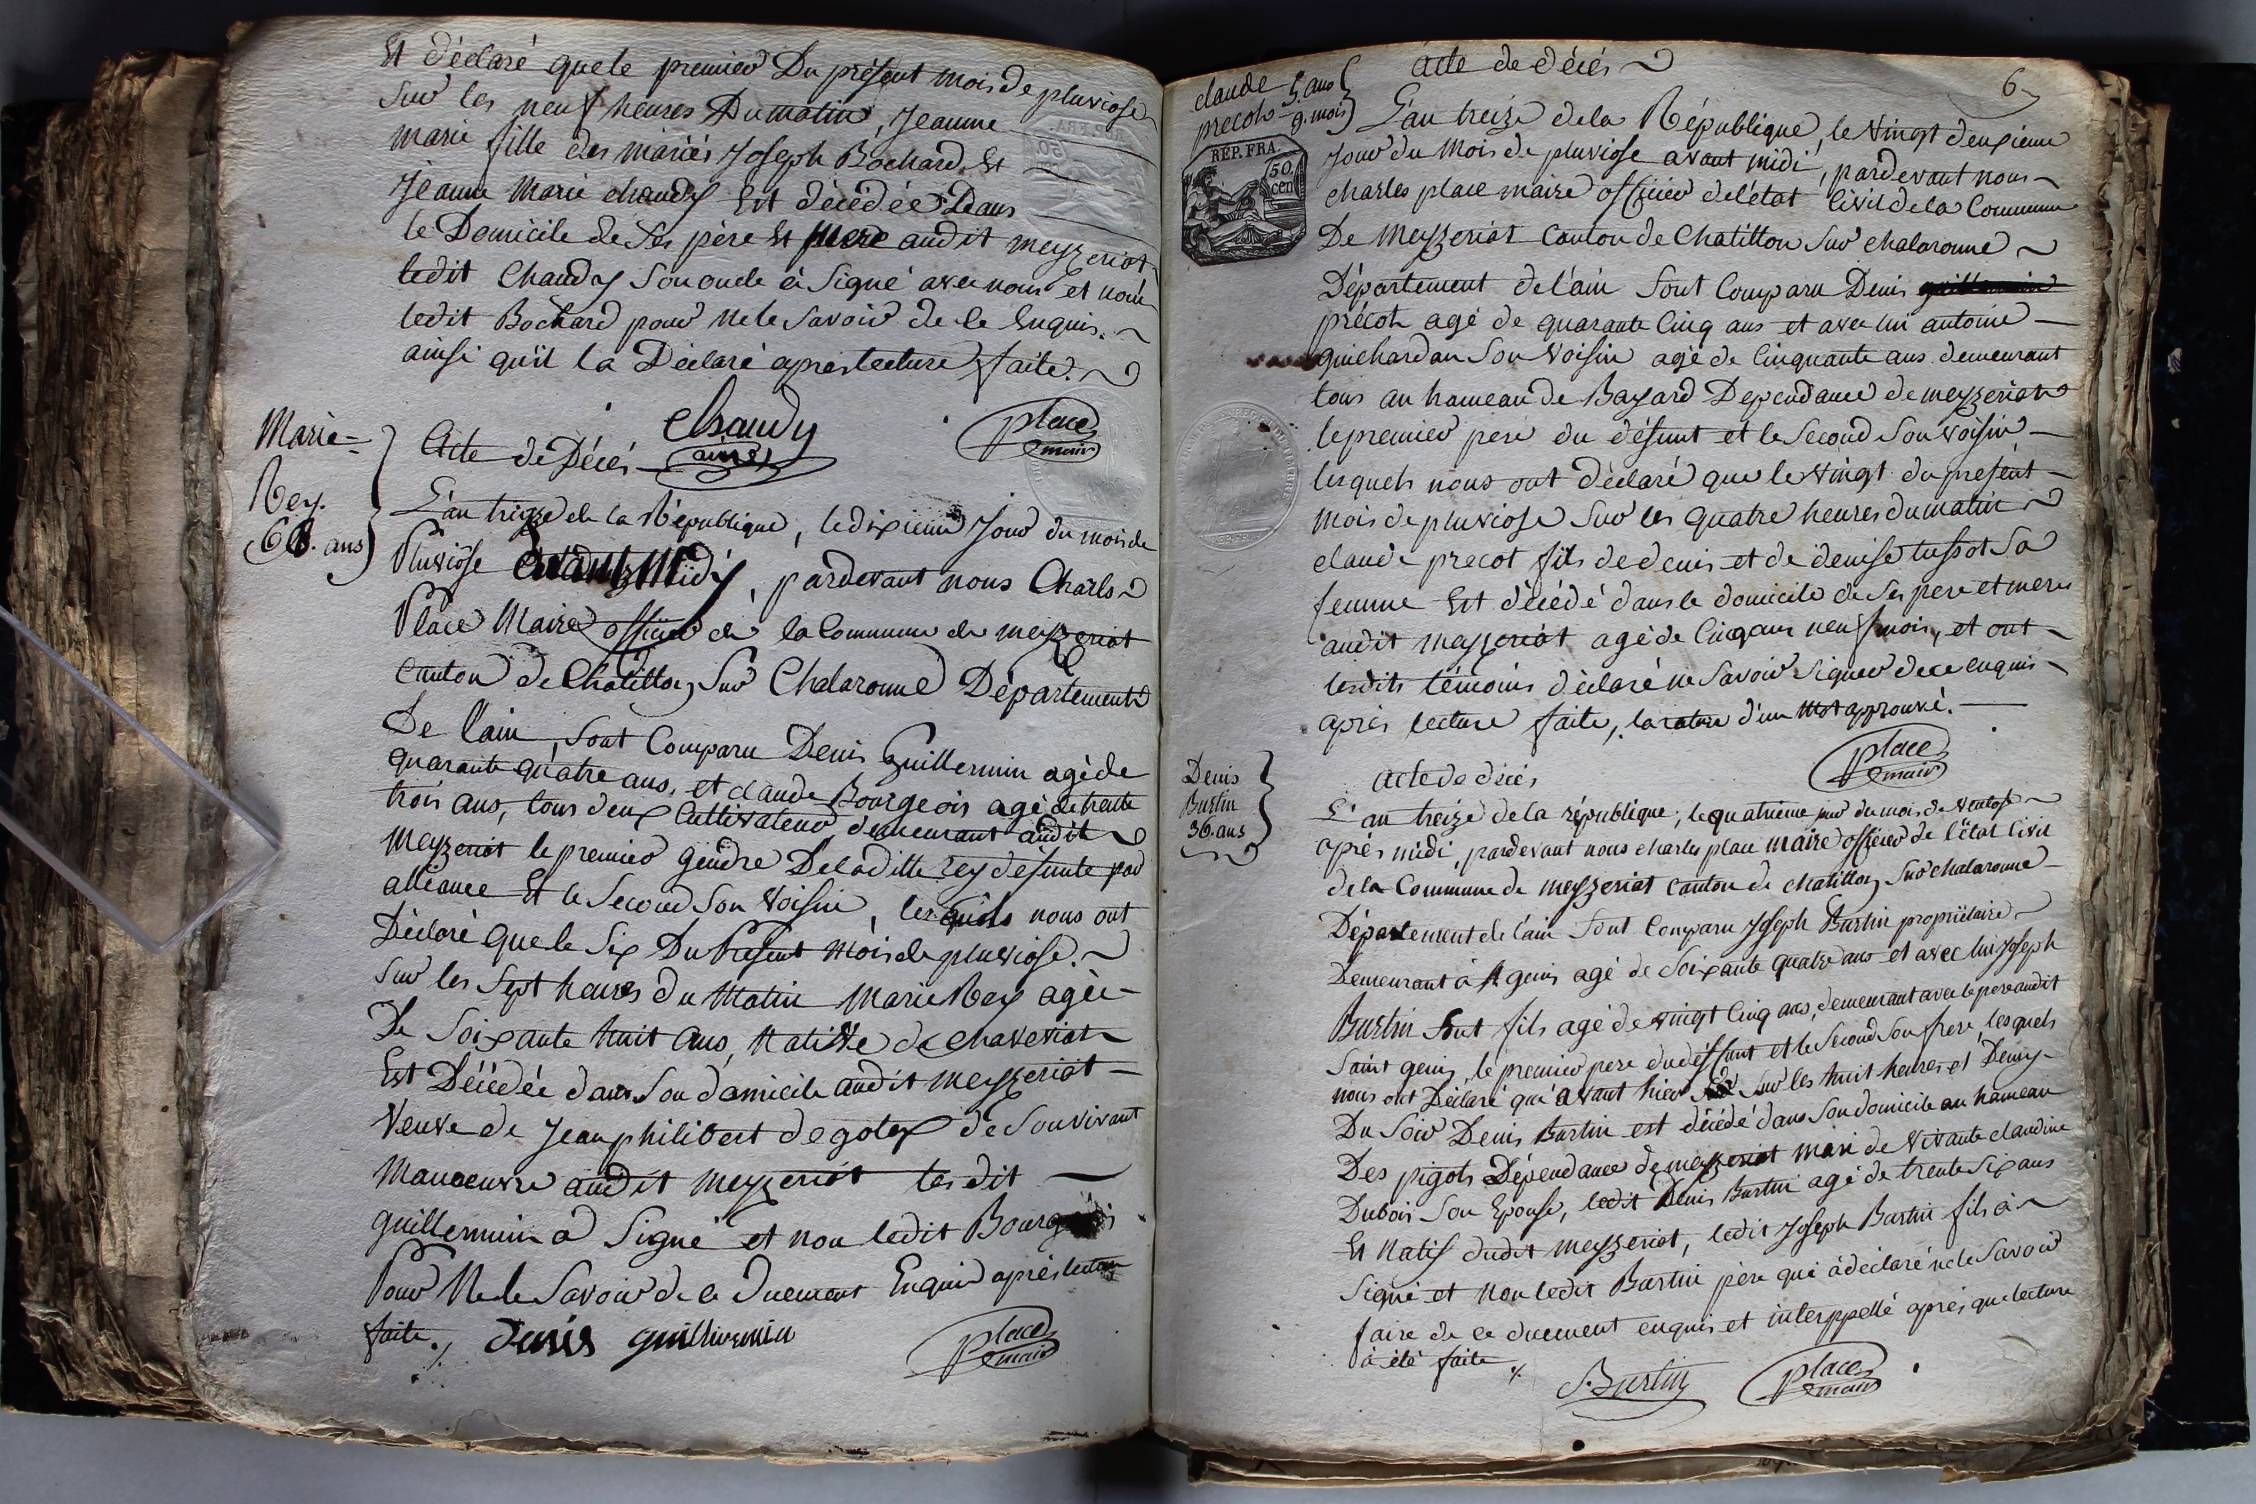 Et déclaré que le premier Du présent mois de pluviose
Sur les neuf heures Du matin, Jeanne
marie fille des mariés Joseph Bochard Et
Jeanne Marie chaudy Est décédée Dans
le Domicile de Ses père Et mere audit meyzeriat
ledit Chaudy Son oncle à Signé avec nous et non
ledit Bochard pour ne le Savoir de ce Enquis.
ainsi qu'il la Déclaré apres lecture faite.
Chaudy
ainé
place
maire
Marie
Rey.
68. ans
Acte de Décés
L'an treize de la République, le dixieme Jour du mois de
Pluviôse avant Midy, pardevant nous Charls
Place Maire officier de la Commune de meyzeriat
canton de Châtillon Sur Chalaronne Département
De l'ain, Sont Comparu Denis Guillermin agé de
quarante quatre ans, et claude Bourgeois agé de trente
trois ans, tous deux Cultivateur demeurant audit
Meyzeriat le premier gendre De laditte rey défunte par
alliance Et le Second Son Voisin, lesquels nous ont
Déclaré que le Six Du Présent Mois de pluviose.
Sur les Sept heures du Matin Marie Rey agée
De Soixante huit Ans, Native de chaveriat
Est Décédée dans Son domicile audit meyzeriat
Veuve de Jean philibert degoley de Son vivant
Manoeuvre audit meyzeriat lesdit
guillermin à Signé et non ledit Bourgeois
Pour Ne le Savoir de ce Duement Enquis après lecture
faite.
denis guilliermin
place
maire
6
claude
precot 5. ans
9. mois
acte de décés
REP. FRA.
50
cen
L'an treize de la République, le vingt deuxieme
Jour du Mois de pluviose avant midi, pardevant nous
charles place maire officier de létat Civil de la Commune
De Meyzeriat Canton de Chatillon Sur chalaronne
Département de lain Sont Comparu Denis
précot agé de quarante Cinq ans et avec lui antoine
guichardan Son Voisin agé de Cinquante ans demeurant
tous au hameau de Bayard Dependance de meyzeriat
le premier pere du défunt et le Second Son voisin
lesquels nous ont déclaré que le vingt du present
mois de pluviose Sur les quatre heures du matin
claude precot fils de denis et de denise tussot Sa
femme Est décédé dans le domicile de Ses pere et mere
audit meyzeriat agé de Cinq ans neuf mois, et ont
lesdits témoins déclaré ne Savoir Signer de ce enquis
après lecture faite, la rature d'un Mot approuvé.
place
maire
Denis
Burtin
36. ans
acte de décés
L'an treize de la république, le quatrieme jour du mois de Ventose
après midi, pardevant nous charles place maire officier de l'état Civil
de la Commune de meyzeriat canton de chatillon Sur chalaronne
Département de lain Sont Comparu Joseph Burtin propriétaire
Demeurant à St genis agé de Soixante quatre ans et avec lui Joseph
Burtin Son fils agé de vingt Cinq ans, demeurant avec le pere audit
Saint genis, le premier pere du défunt et le Second Son frere, lesquels
nous ont Déclaré qu'avant hier Sur les huit heures et Demy
Du Soir Denis Burtin est décédé dans Son domicile au hameau
Des pigots Dépendance de meyzeriat mari de Vivante claudine
Dubois Son Epouse, ledit Denis Burtin agé de trente Six ans
Et Natif dudit meyzeriat, ledit Joseph Burtin fils à
Signé et non ledit Burtin père qui à déclaré ne le Savoir
faire de ce duement enquis et interppellé après que lecture
à été faite
J. Burtin
place
maire